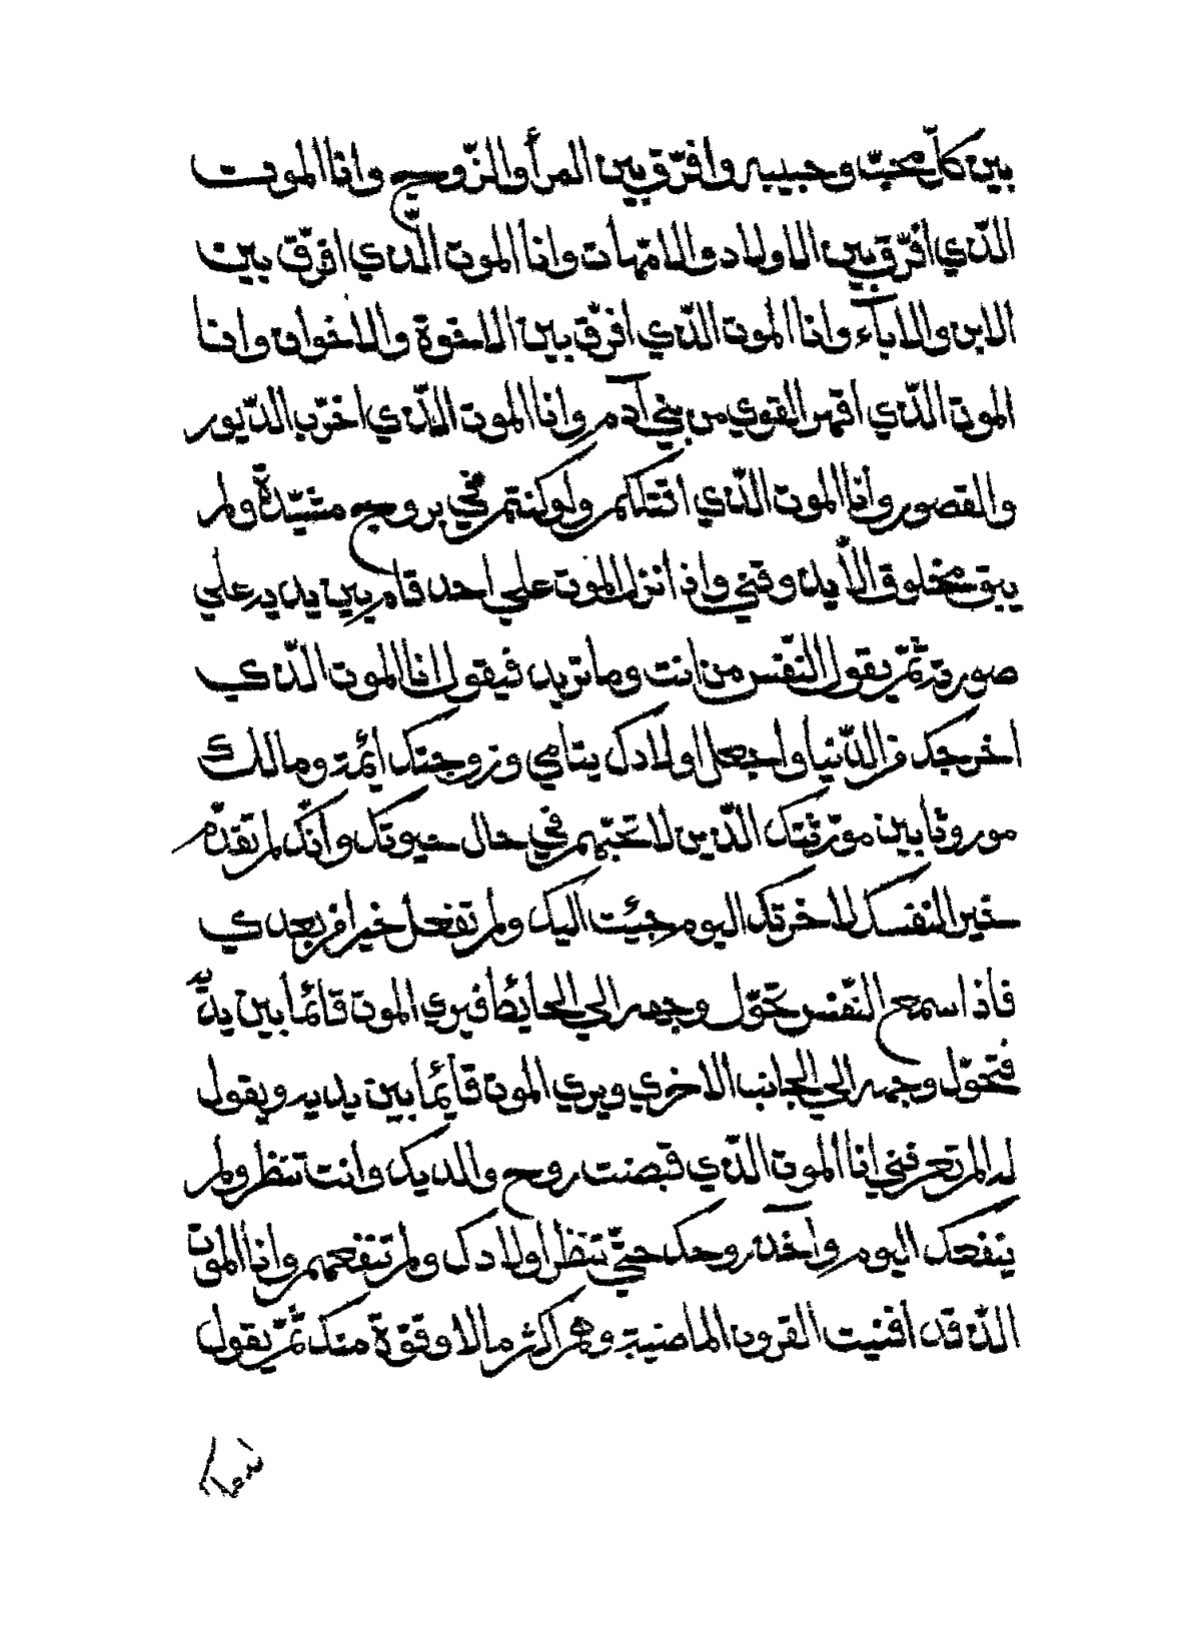 بين كلّ محبّ وحبيبه وافرّق بين المرأ والزّوج وانا الموت
الذّي افرّق بين الاولاد والامّهات وانا الموت الذّي افرّق بين
الابن والابآء وانا الموت الذّي افرّق بين الاخوة والاخوان وانا
الموت الذّي اقهر القوي من بني آدم وانا الموت الذّي اخرّب الدّيور
والقصور وانا الموت الذّي اقتلكم ولو كنتم في بروج مشيّدة ولم
يبق مخلوق الأيذوقني واذا نزل الموت علي احد قام بين يديه علي
صورته ثمّ يقول النّفس من انت وما تريد فيقول انا الموت الذّي
اخرجك من الدّنيا واجعل اولادك يتامي وزوجتك ائمة ومالك
موروثا بين مورّثتك الذّين لا تحبّهم في حال حيوتك وانّك لم تقدّم
خير النفسك لاخرتك اليوم جئت اليك ولم تفعل خيرا من بعدي
فاذا سمع النّفس تحوّل وجهه الي الحائط فيري الموت قائما بين يديه
فتحوّل وجهه الي الجانب الاخري ويري الموت قائما بين يديه ويقول
له الم تعرفني انا الموت الذّي قبضت روح والديك وانت تنظر ولم
ينفعك اليوم وآخذ روحك حتّي تنظر اولادك ولم تنفعهم وانا الموت
الذّ قد افنيت القرون الماضية وهم اكثر مالا وقوّة منك ثمّ يقول